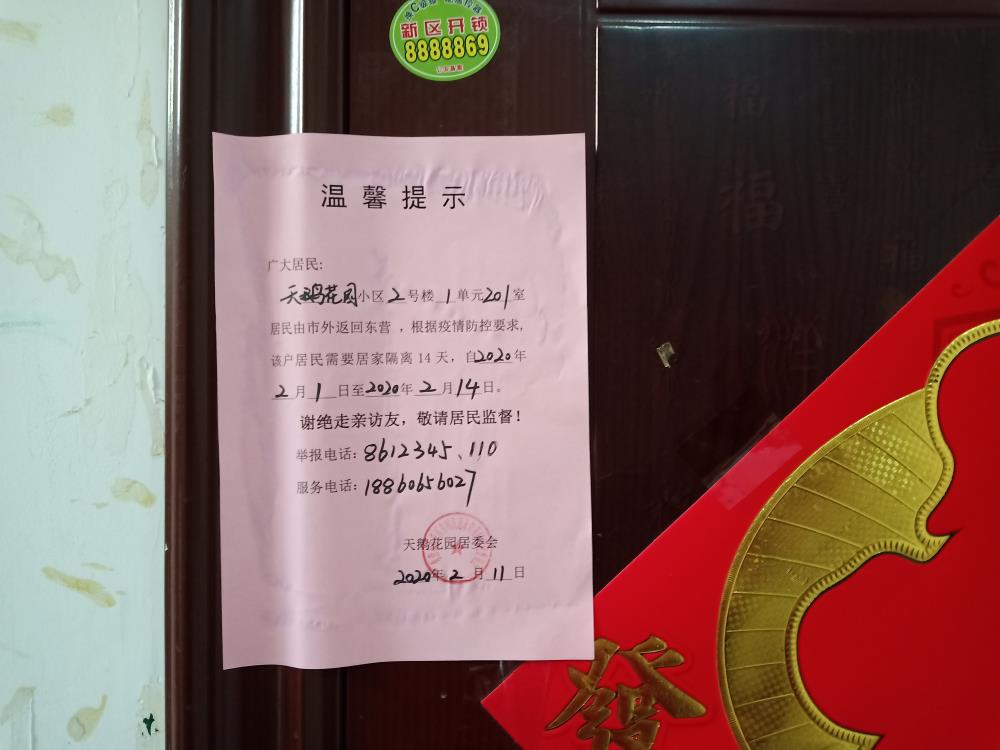 新区开锁
8888869
温馨提示
广大居民:
天鹅花园小区2号楼1单元201室
居民由市外返回东营，根据疫情防控要求,
该户居民需要居家隔离14天，自2020年
2月1日至2020年2月14日。
谢绝走亲访友，敬请居民监督!
举报电话: 8612345、110
服务电话: 18860656027
天鹅花园居委会
2020年2月11日
福
發